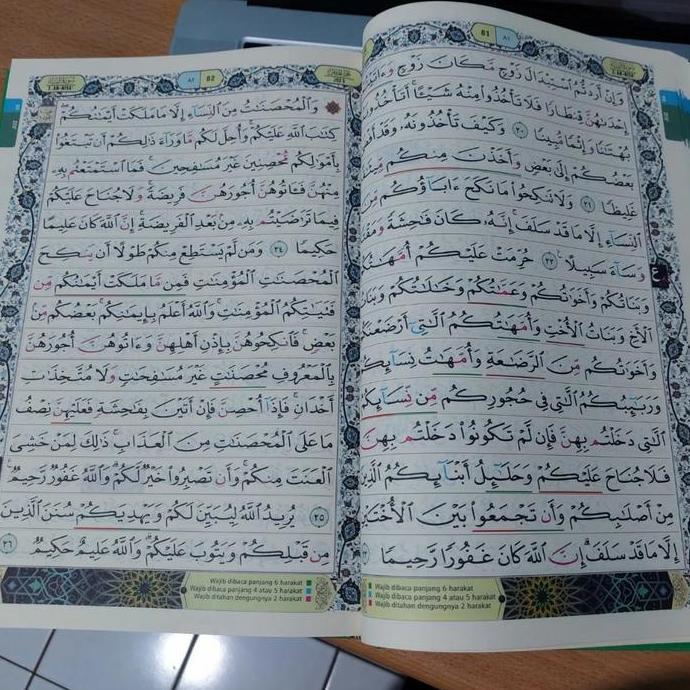 61 ٨١
وَإِنْ أَرَدتُّمُ ٱسْتِبْدَالَ زَوْجٍ مَّكَانَ زَوْجٍ وَءَاتَيْتُمْ
إِحْدَىٰهُنَّ قِنطَارًا فَلَا تَأْخُذُوا۟ مِنْهُ شَيْـًٔا ۚ أَتَأْخُذُونَهُۥ
بُهْتَٰنًا وَإِثْمًا مُّبِينًا ٢٠ وَكَيْفَ تَأْخُذُونَهُۥ وَقَدْ أَفْضَىٰ
بَعْضُكُمْ إِلَىٰ بَعْضٍ وَأَخَذْنَ مِنكُم مِّيثَٰقًا
غَلِيظًا ٢١ وَلَا تَنكِحُوا۟ مَا نَكَحَ ءَابَآؤُكُم مِّنَ
ٱلنِّسَآءِ إِلَّا مَا قَدْ سَلَفَ ۚ إِنَّهُۥ كَانَ فَٰحِشَةً وَمَقْتًا
وَسَآءَ سَبِيلًا ٢٢ حُرِّمَتْ عَلَيْكُمْ أُمَّهَٰتُكُمْ
وَبَنَاتُكُمْ وَأَخَوَٰتُكُمْ وَعَمَّٰتُكُمْ وَخَٰلَٰتُكُمْ وَبَنَاتُ
ٱلْأَخِ وَبَنَاتُ ٱلْأُخْتِ وَأُمَّهَٰتُكُمُ ٱلَّٰتِىٓ أَرْضَعْنَكُمْ
وَأَخَوَٰتُكُم مِّنَ ٱلرَّضَٰعَةِ وَأُمَّهَٰتُ نِسَآئِكُمْ
وَرَبَٰٓئِبُكُمُ ٱلَّٰتِى فِى حُجُورِكُم مِّن نِّسَآئِكُمُ
ٱلَّٰتِى دَخَلْتُم بِهِنَّ فَإِن لَّمْ تَكُونُوا۟ دَخَلْتُم بِهِنَّ
فَلَا جُنَاحَ عَلَيْكُمْ وَحَلَٰٓئِلُ أَبْنَآئِكُمُ ٱلَّذِينَ
مِنْ أَصْلَٰبِكُمْ وَأَن تَجْمَعُوا۟ بَيْنَ ٱلْأُخْتَيْنِ
إِلَّا مَا قَدْ سَلَفَ ۗ إِنَّ ٱللَّهَ كَانَ غَفُورًا رَّحِيمًا
Wajib dibaca panjang 6 harakat
Wajib dibaca panjang 4 atau 5 harakat
Wajib ditahan dengungnya 2 harakat
٨٢ 82
وَٱلْمُحْصَنَٰتُ مِنَ ٱلنِّسَآءِ إِلَّا مَا مَلَكَتْ أَيْمَٰنُكُمْ
كِتَٰبَ ٱللَّهِ عَلَيْكُمْ ۚ وَأُحِلَّ لَكُم مَّا وَرَآءَ ذَٰلِكُمْ أَن تَبْتَغُوا۟
بِأَمْوَٰلِكُم مُّحْصِنِينَ غَيْرَ مُسَٰفِحِينَ ۚ فَمَا ٱسْتَمْتَعْتُم بِهِۦ
مِنْهُنَّ فَـَٔاتُوهُنَّ أُجُورَهُنَّ فَرِيضَةً ۚ وَلَا جُنَاحَ عَلَيْكُمْ
فِيمَا تَرَٰضَيْتُم بِهِۦ مِنۢ بَعْدِ ٱلْفَرِيضَةِ ۚ إِنَّ ٱللَّهَ كَانَ عَلِيمًا
حَكِيمًا ٢٤ وَمَن لَّمْ يَسْتَطِعْ مِنكُمْ طَوْلًا أَن يَنكِحَ
ٱلْمُحْصَنَٰتِ ٱلْمُؤْمِنَٰتِ فَمِن مَّا مَلَكَتْ أَيْمَٰنُكُم مِّن
فَتَيَٰتِكُمُ ٱلْمُؤْمِنَٰتِ ۚ وَٱللَّهُ أَعْلَمُ بِإِيمَٰنِكُم ۚ بَعْضُكُم مِّنۢ
بَعْضٍ ۚ فَٱنكِحُوهُنَّ بِإِذْنِ أَهْلِهِنَّ وَءَاتُوهُنَّ أُجُورَهُنَّ
بِٱلْمَعْرُوفِ مُحْصَنَٰتٍ غَيْرَ مُسَٰفِحَٰتٍ وَلَا مُتَّخِذَٰتِ
أَخْدَانٍ ۚ فَإِذَآ أُحْصِنَّ فَإِنْ أَتَيْنَ بِفَٰحِشَةٍ فَعَلَيْهِنَّ نِصْفُ
مَا عَلَى ٱلْمُحْصَنَٰتِ مِنَ ٱلْعَذَابِ ۚ ذَٰلِكَ لِمَنْ خَشِىَ
ٱلْعَنَتَ مِنكُمْ ۚ وَأَن تَصْبِرُوا۟ خَيْرٌ لَّكُمْ ۗ وَٱللَّهُ غَفُورٌ رَّحِيمٌ
٢٥ يُرِيدُ ٱللَّهُ لِيُبَيِّنَ لَكُمْ وَيَهْدِيَكُمْ سُنَنَ ٱلَّذِينَ
مِن قَبْلِكُمْ وَيَتُوبَ عَلَيْكُمْ ۗ وَٱللَّهُ عَلِيمٌ حَكِيمٌ ٢٦
Wajib dibaca panjang 6 harakat
Wajib dibaca panjang 4 atau 5 harakat
Wajib ditahan dengungnya 2 harakat